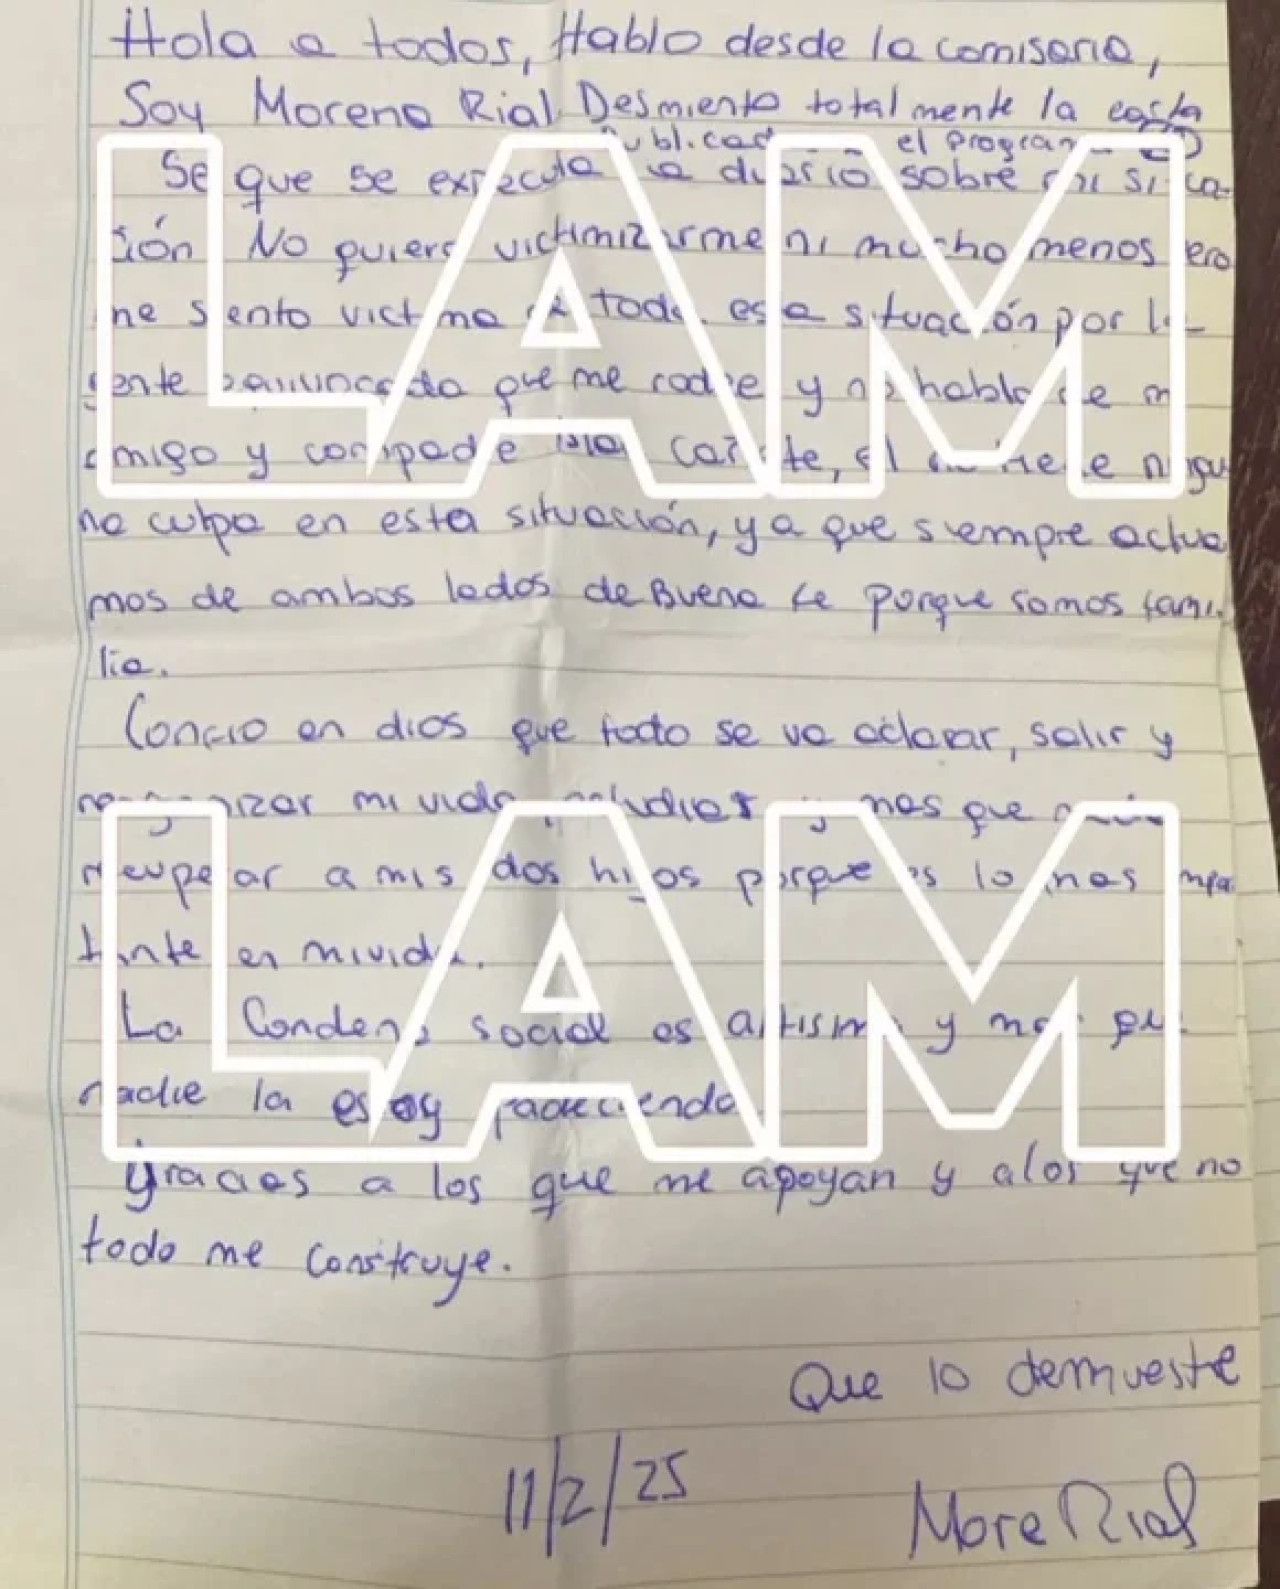 Hola a todos, Hablo desde la comisaria,
Soy Morena Rial. Desmiento totalmente la carta
el program
Se que se expecula a diario sobre mi situa-
ción No quiero victimizarme ni mucho menos pero
me siento victima de toda esta situación por la
gente que me rodie y no hablo de mi
amigo y compadre te, el no tiene ningu
na culpa en esta situación, ya que siempre actua
mos de ambos lados de Buena fe porque somos fami-
lia.
Confio en dios que todo se va aclarar, salir y
reorganizar mi vida, estudiar y mas que nada
recuperar a mis dos hijos porque es lo mas impor
tante en mi vida.
La Condena social es altisima y mas que
nadie la estoy padeciendo
Gracias a los que me apoyan y a los que no
todo me construye.
Que lo demueste
11/2/25
More Rial
LAM
LAM